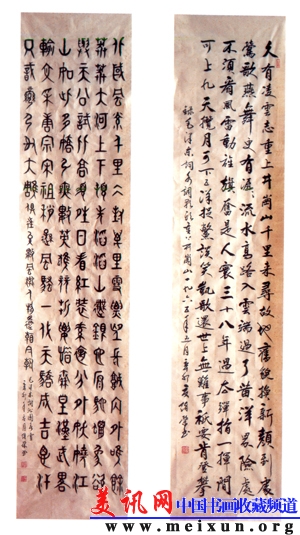 久有凌雲志重上井岡山千里來尋故地舊貌換新顏到處
鶯歌燕舞更有潺潺流水高路入雲端過了黃洋界險處
不須看風雷動旌旗奮是人寰三十八年過去彈指一揮間
可上九天攬月可下五洋捉鱉談笑凱歌還世上無難事祇要肯登攀
錄毛澤東詞水調歌頭重上井岡山一九六五年五月辛卯
北國風光千里冰封萬里雪飄望長城內外唯餘
莽莽大河上下頓失滔滔山舞銀蛇原馳蠟象欲
與天公試比高須晴日看紅裝素裹分外妖嬈江
山如此多嬌引無數英雄競折腰惜秦皇漢武略
輸文采唐宗宋祖稍遜風騷一代天驕成吉思汗
只識彎弓射大雕俱往矣數風流人物還看今朝
美讯网 中国书画收藏频道
www.meixun.org